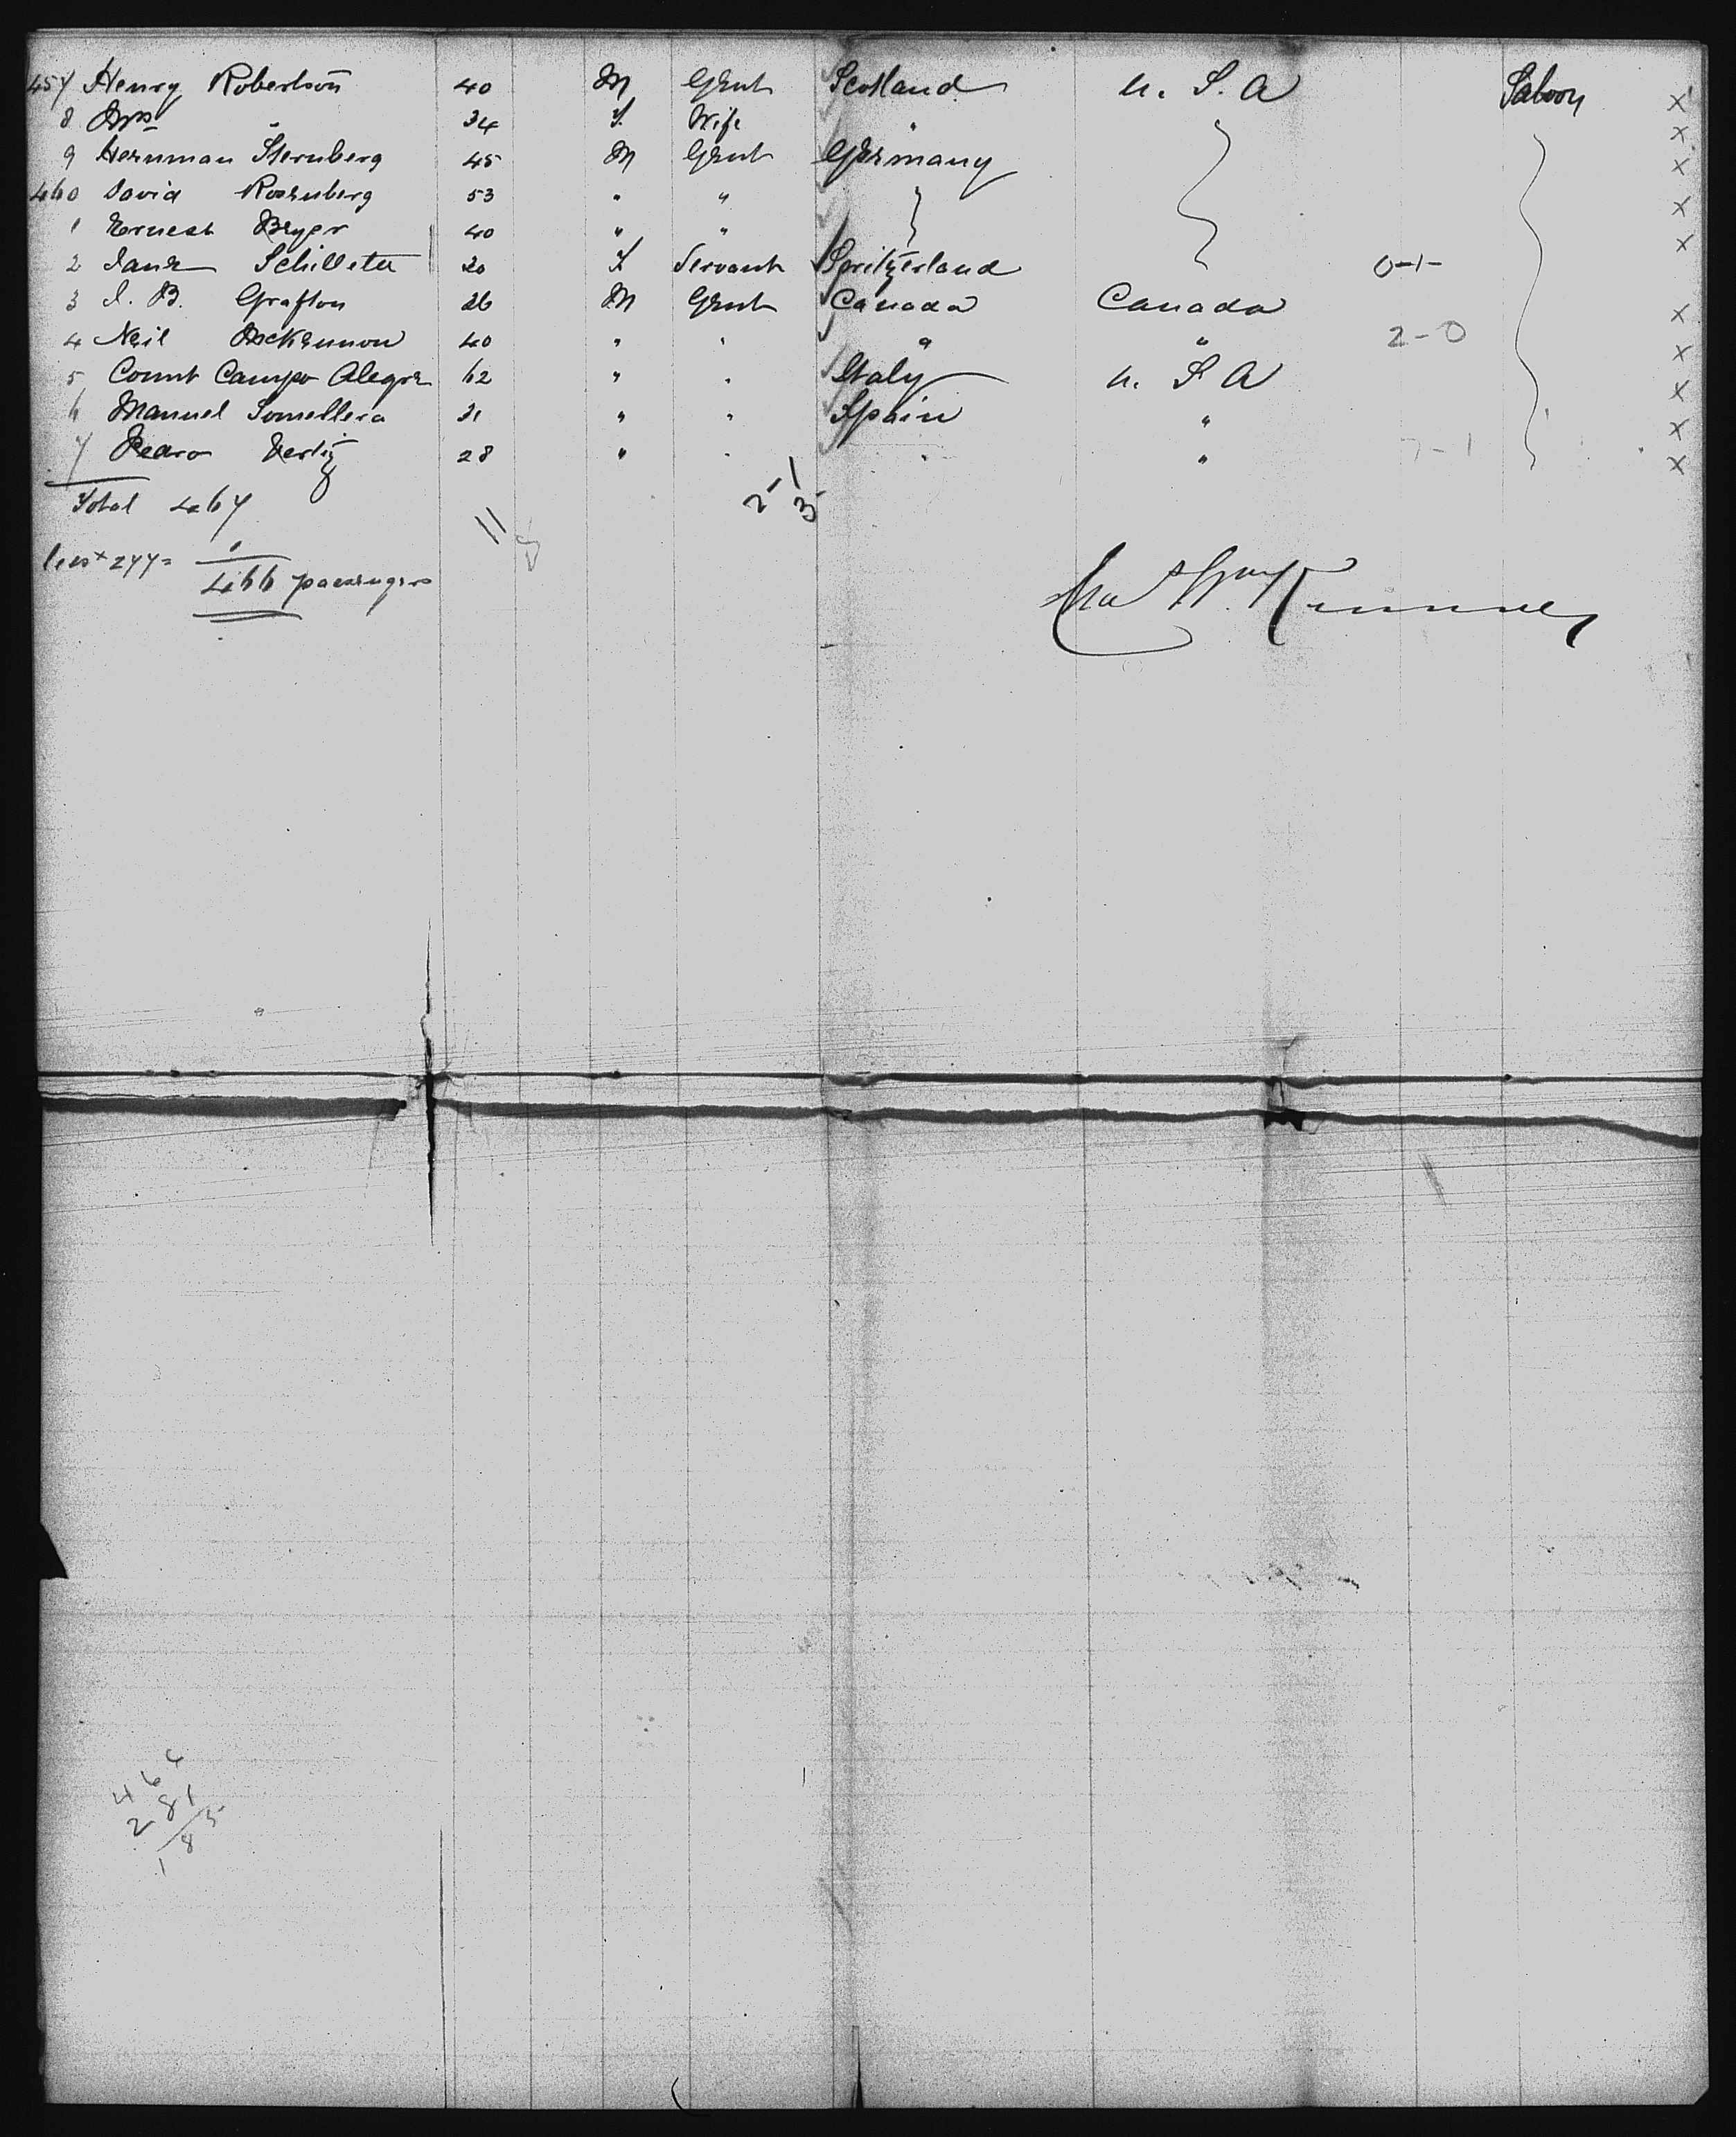 457 Henry Robertson 40 M Gent Scotland U. S. A Saloon X
8 Mrs " 34 F. Wife " X
9 Hernman Sternberg 45 M Gent Germany X
460 David Rosenberg 53 " " X
1 Ernest Beyer 40 " " X
2 Jane 20 F Servant Switzerland 0-1-
3 J. B. Grafton 26 M Gent Canada Canada X
4 Neil McKennon 40 " " " " 2-0 X
5 Count Campo Alegre 62 " " Italy U. S A X
6 Manuel Somellera 31 " " Spain " X
7 Pedro 28 " " " " 7-1 X
Total 467
less * 277 = 1
466 passengers
11
2-1
3
464
281
185